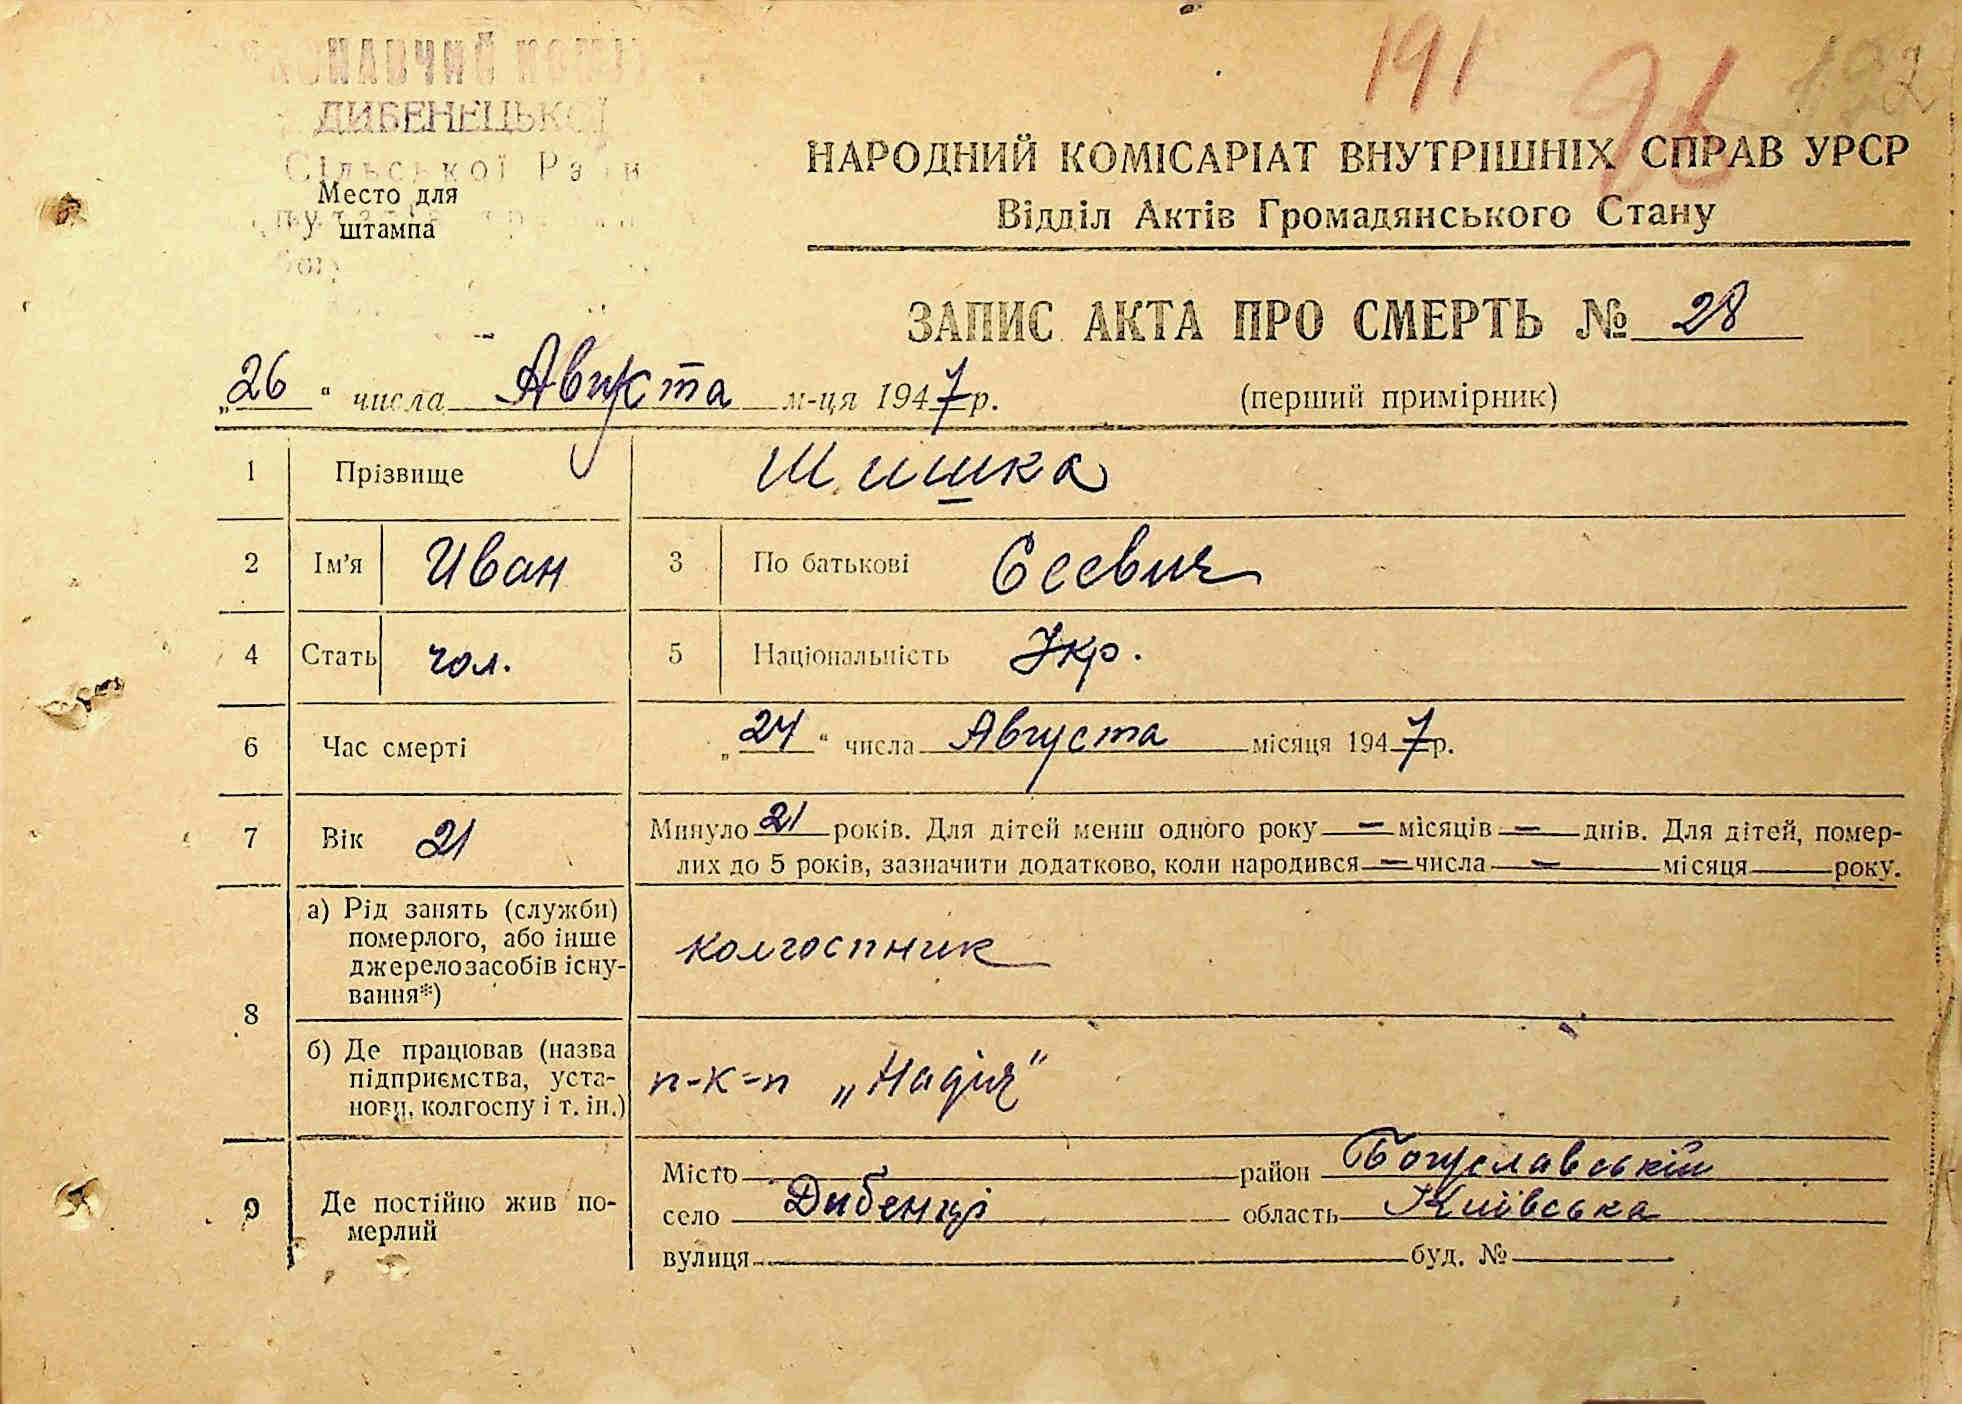 191 96
ДИБЕНЕЦЬКОЇ
Сільської Ради
Место для
штампа
НАРОДНИЙ КОМІСАРІАТ ВНУТРІШНІХ СПРАВ УРСР
Відділ Актів Громадянського Стану
ЗАПИС АКТА ПРО СМЕРТЬ № 28
„26“ числа Августа м-ця 1947 р.
(перший примірник)
1 Прізвище Шишка
2 Ім’я Иван 3 По батькові Єсевич
4 Стать чол. 5 Національність Укр.
6 Час смерті „24“ числа Августа місяця 1947 р.
7 Вік 21 Минуло 21 років. Для дітей менш одного року — місяців — днів. Для дітей, помер-
лих до 5 років, зазначити додатково, коли народився — числа — місяця року.
8 а) Рід занять (служби)
померлого, або інше
джерело засобів існу-
вання*)
колгоспник
б) Де працював (назва
підприємства, уста-
нови, колгоспу і т. ін.)
п-к-п „Надія“
9 Де постійно жив по-
мерлий
Місто район Богуславській
село Дибенці область Київська
вулиця буд. №